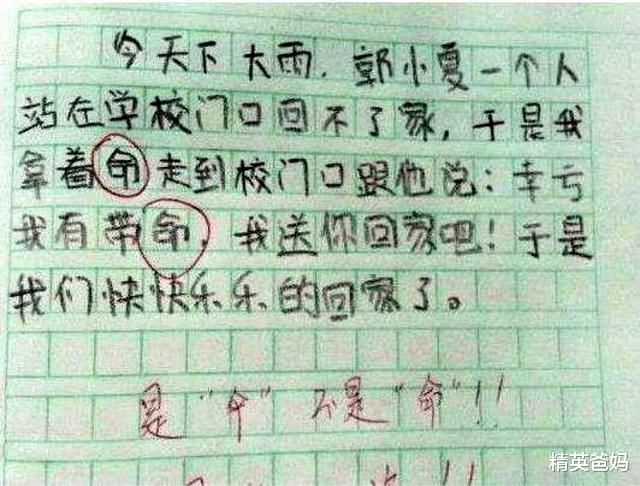 今天下大雨，郭小夏一个人
站在学校门口回不了家，于是我
拿着命走到校门口跟他说：幸亏
我有带命，我送你回家吧！于是
我们快快乐乐的回家了。
是“伞”不是“命”！！
精英爸妈